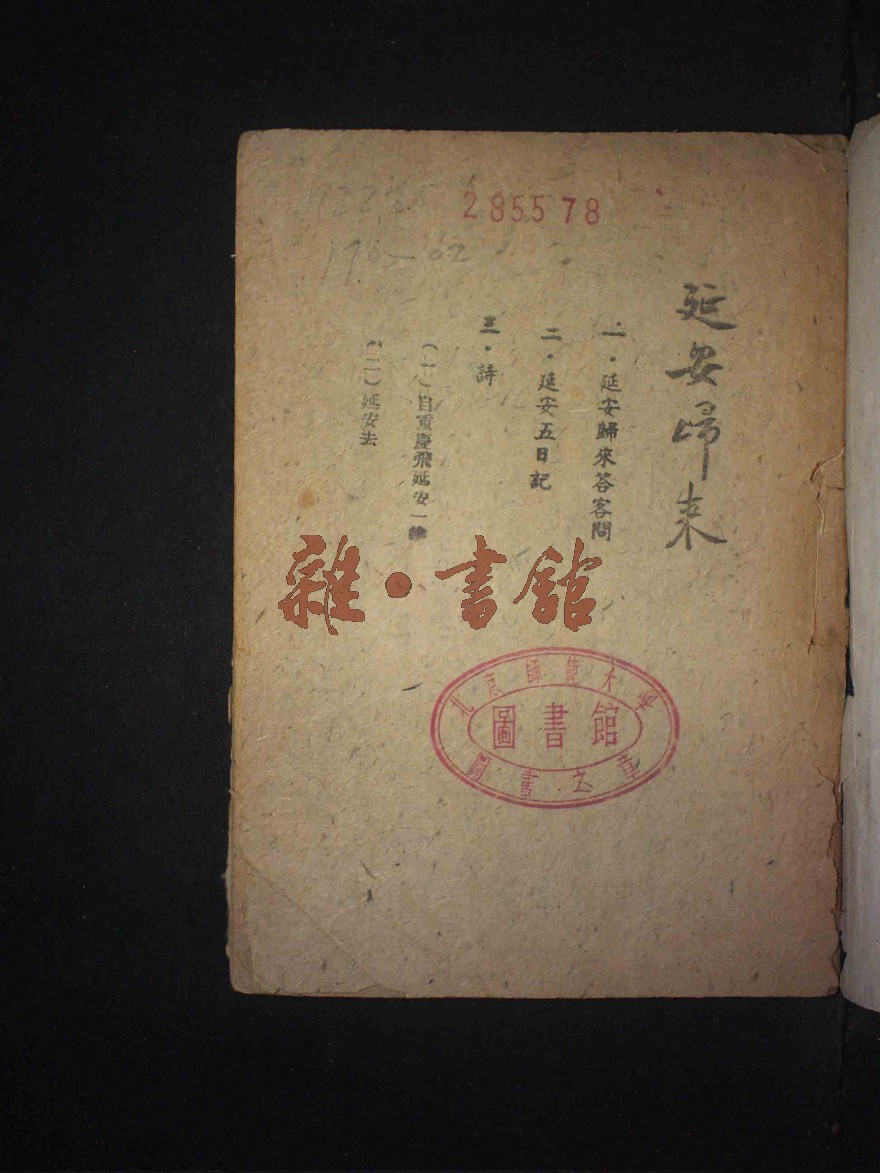 285578
延安歸來
一・延安歸來答客問
二・延安五日記
三・詩
(一)自重慶飛延安一首
(二)延安去
雜・書館
北京師範大學
圖書館
圖書之章